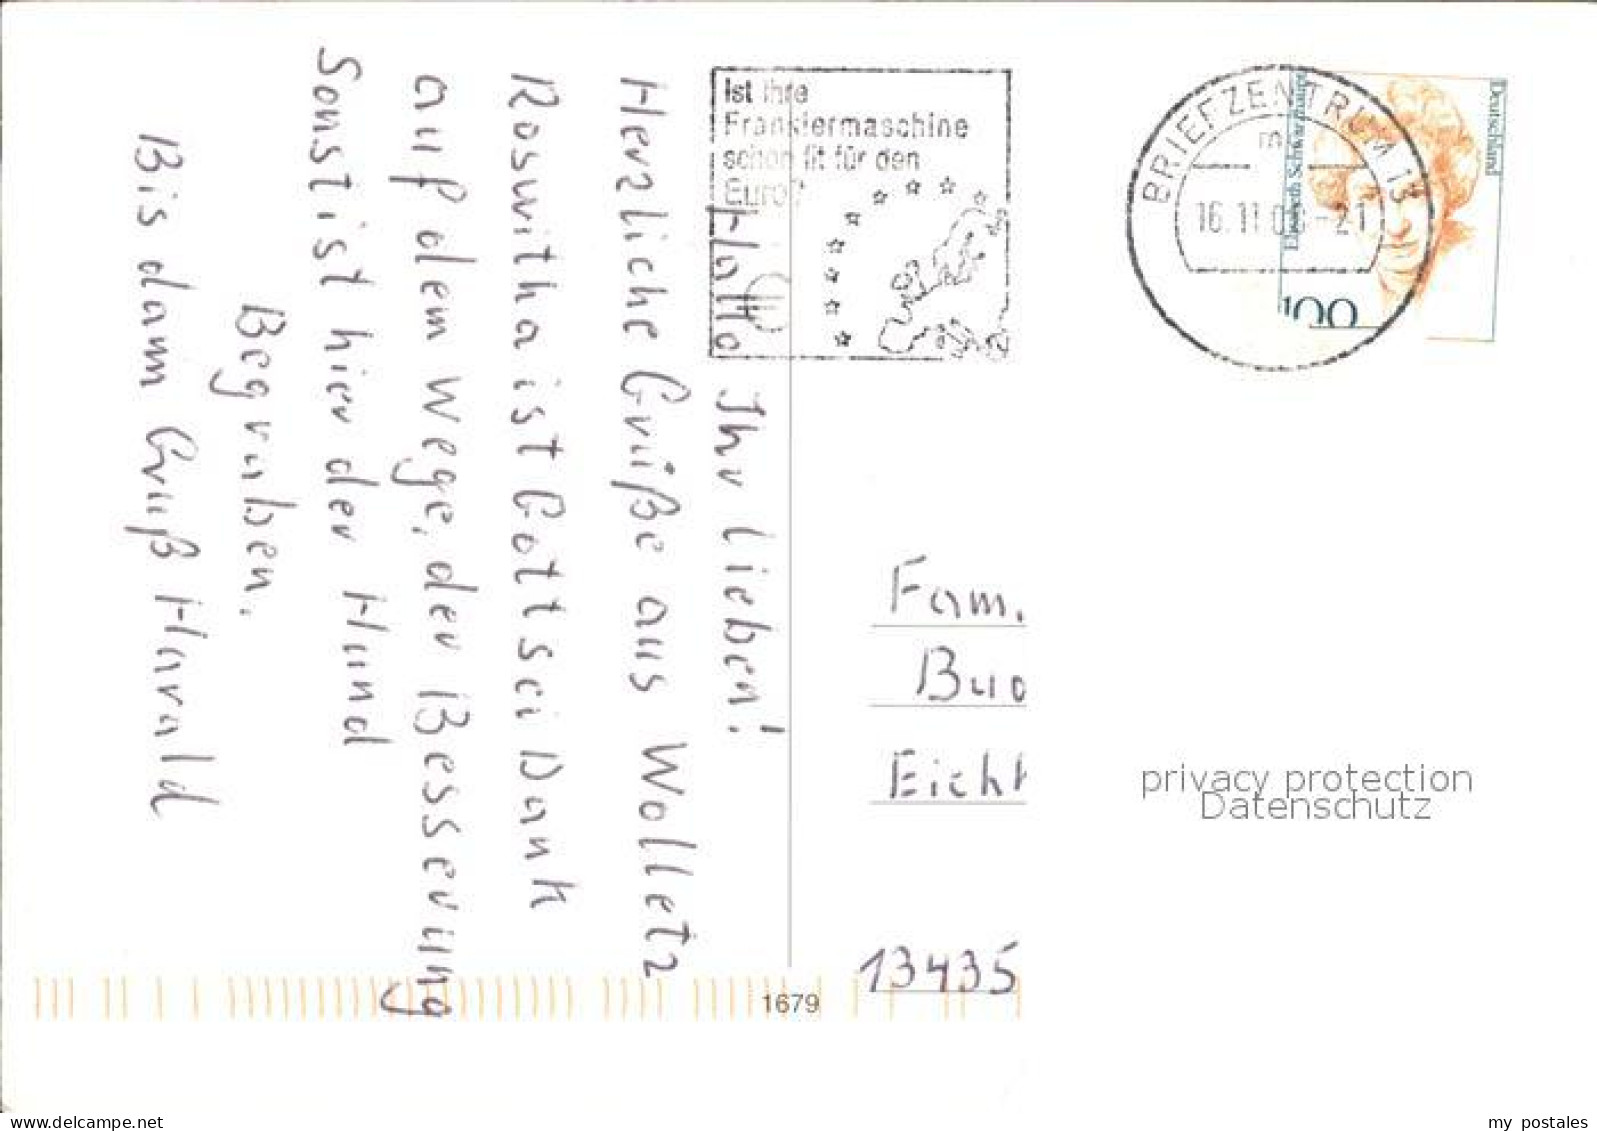 Hallo Ihr Lieben!
Herzliche Grüße aus Wolletz
Roswitha ist Gott sei Dank
auf dem Wege, der Besserung
Sonst ist hier der Hund
Begraben.
Bis dann Gruß Harald
Ist Ihre
Frankiermaschine
schon fit für den
Euro?
BRIEFZENTRUM 13
m
16.11.0 -21
Deutschland
Elisabeth Schwarzhaupt
100
Fam.
Bu
Eich
13435
1679
privacy protection
Datenschutz
www.delcampe.net
my postales